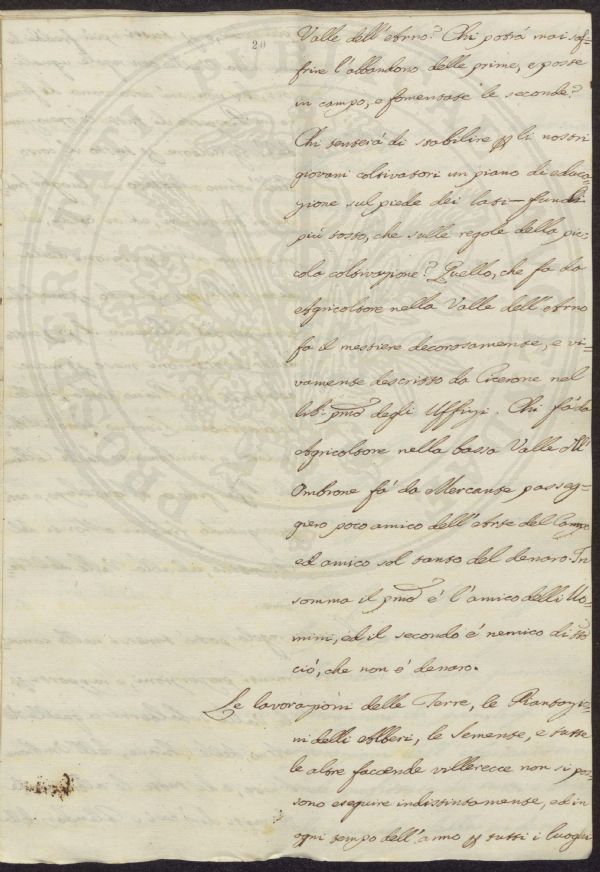 20
Valle dell'Arno? Chi potrà mai sof=
frire l'abbandono delle prime, e posse
in campo, e fomentate le seconde?
Chi tenterà di stabilire p li nostri
giovani coltivatori un piano di educa=
zione sul piede dei lati-fundi
più tosto, che sulle regole della pic=
cola coltivazione? Quello, che fa da
Agricoltore nella Valle dell'Arno
fa il mestiere decorosamente, e vi=
vamente descritto da Cicerone nel
lib. pmo degli Uffizi. Chi fà da
Agricoltore nella bassa Valle dll'
Ombrone fà da Mercante passeg=
giero poco amico dell'Arte del Campo
ed amico sol tanto del denaro. In
somma il pmo è l'amico delli Uo=
mini, ed il secondo è nemico di tto
ciò, che non è denaro.
Le lavorazioni delle Terre, le Piantazio=
ni delli Alberi, le Semente, e tutte
le altre faccende villerecce non si pos
sono eseguire indistintamente, ed in
ogni tempo dell'anno p tutti i luoghi
PROSPERITATI PUBLICAE